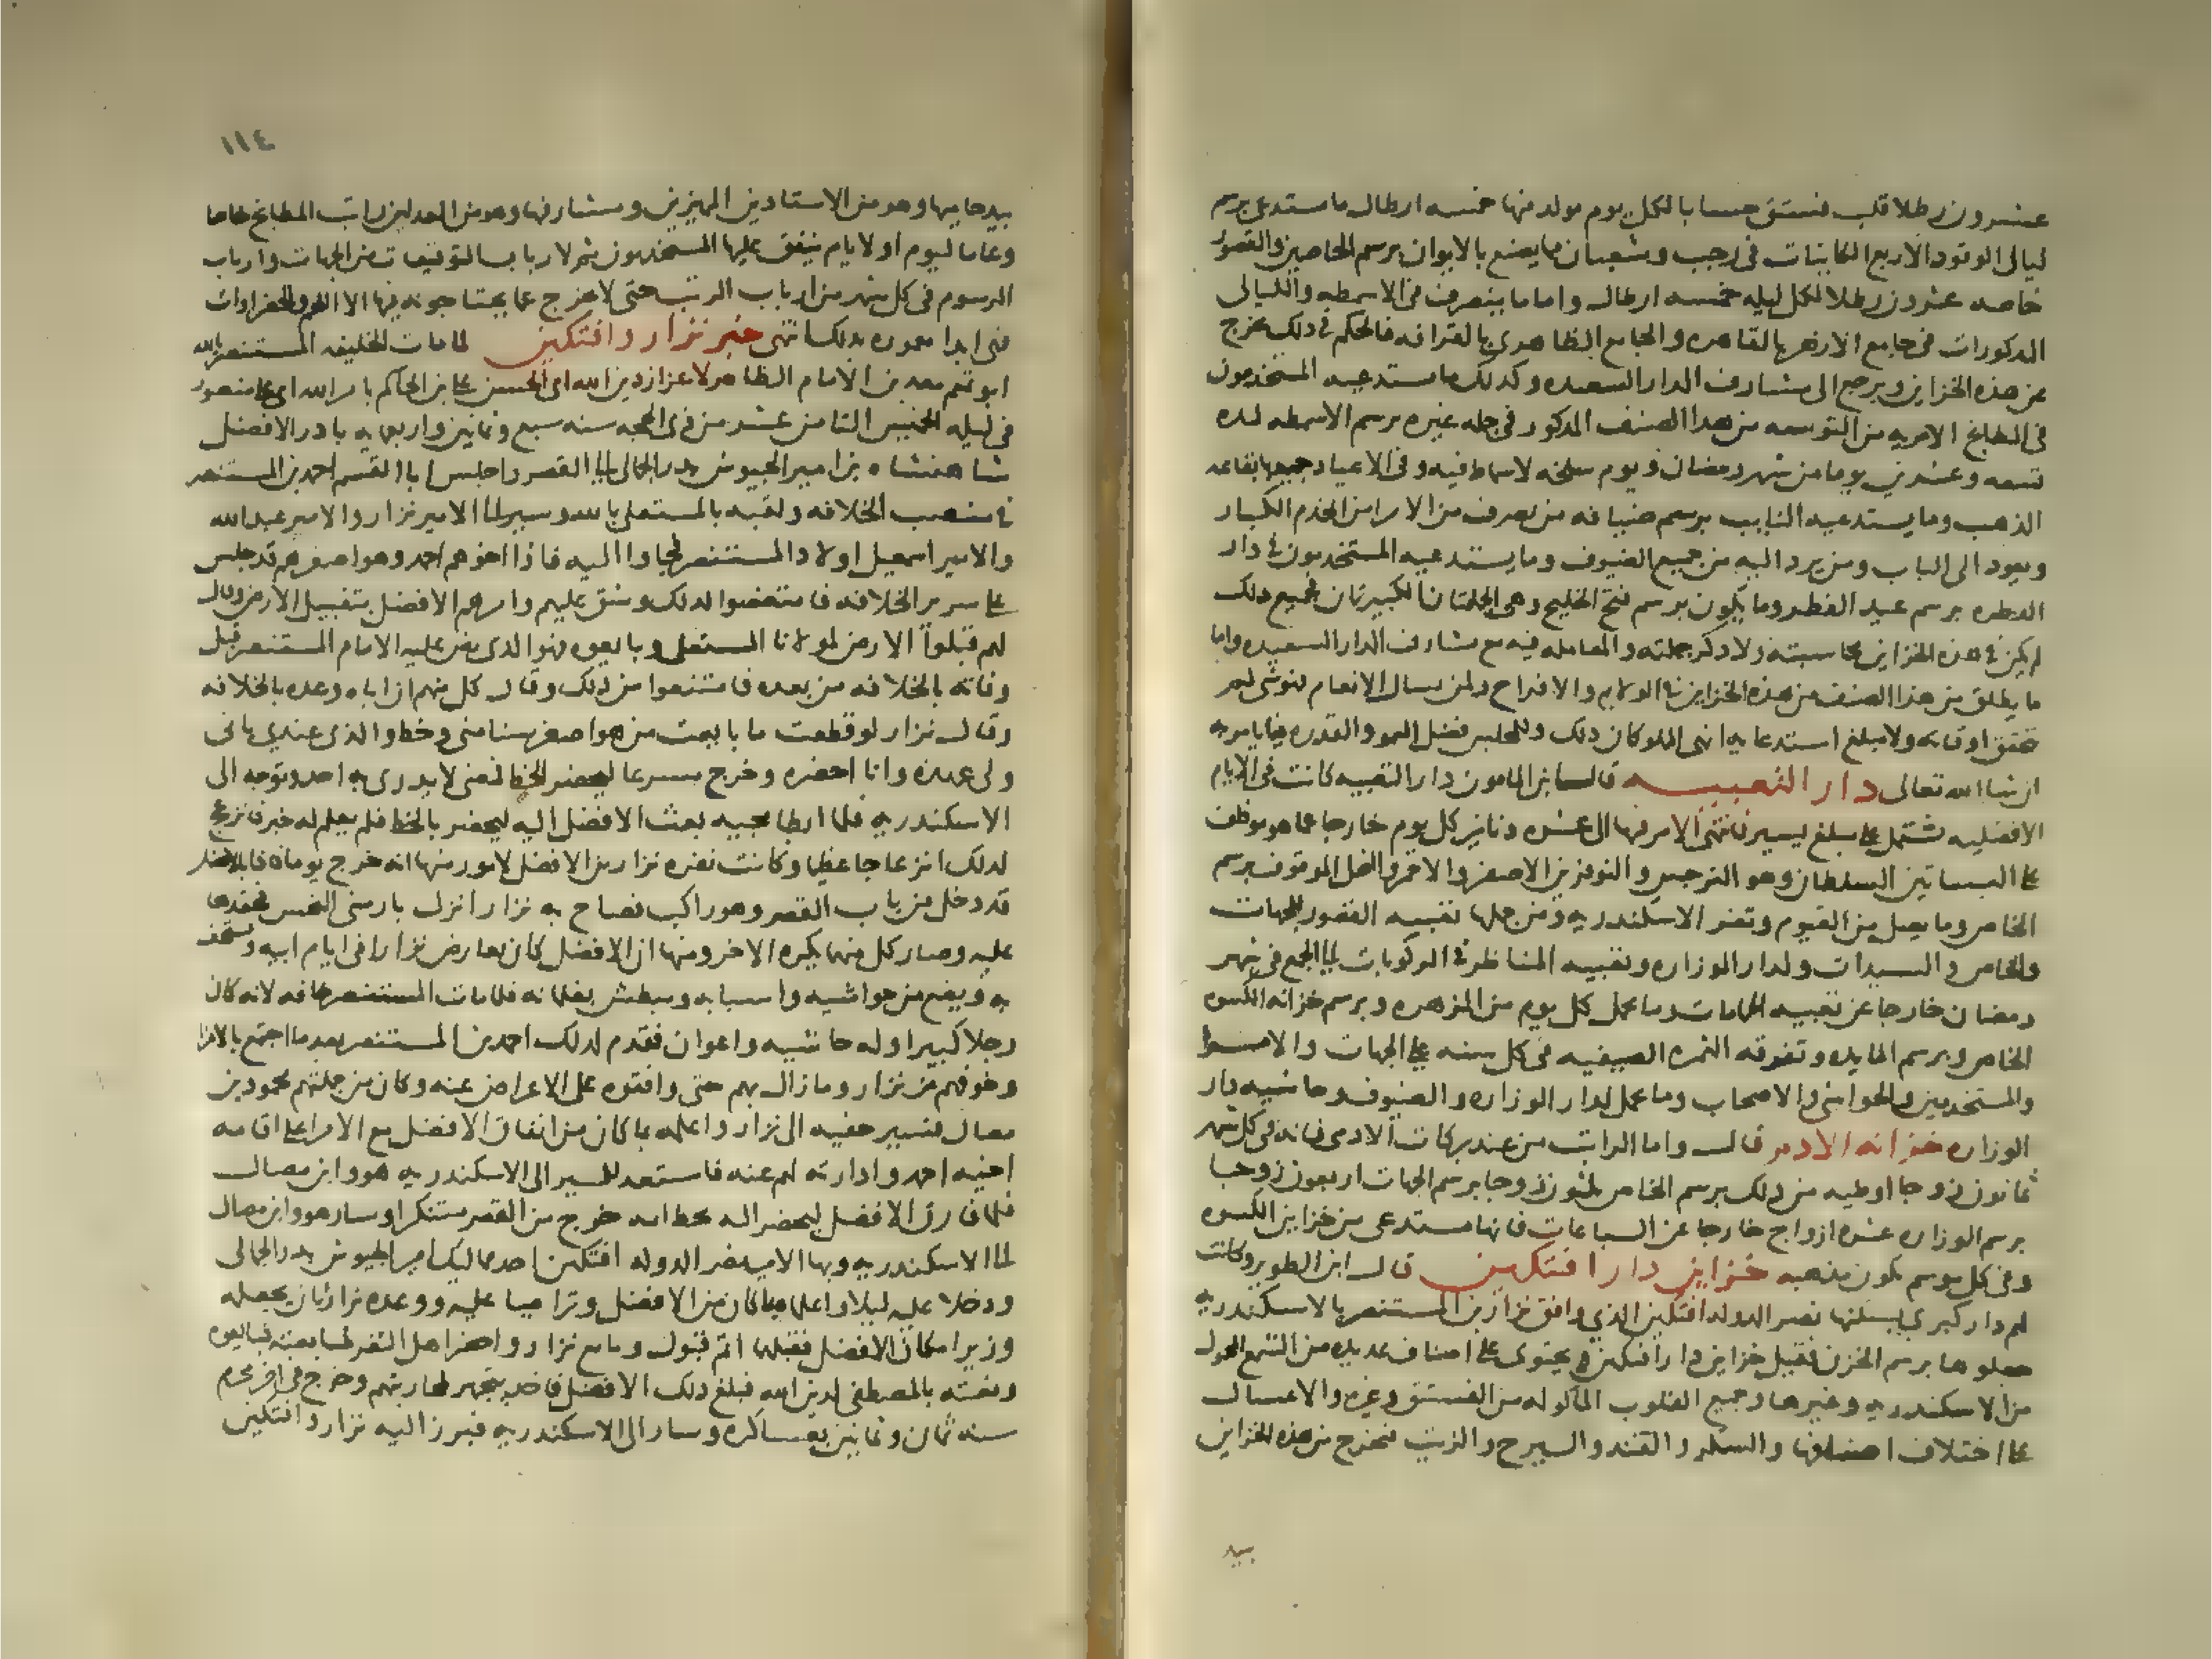 عشرون رطلا قلب فستق حسابا لكل يوم مولد منها خمسه ارطال ما يستدعى برسم
ليالى الوقود الاربع الكاينات فى رجب وشعبان ما يصنع بالايوان برسم الخاصين والقصور
خاصه عشرون رطلا لكل ليله خمسه ارطال واما ما ينصرف فى الاسمطه والليالى
المذكورات فى جامع الازهر بالقاهره والجامع الظاهرى بالقرافه فالحكم فى ذلك يخرج
عن هذه الخزاين ويرجع الى مشارف الدار السعيده وكذلك ما يستدعيه المستخدمون
فى المطابخ الامريه من التوسعه من هذا الصنف المذكور فى جمله غيره برسم الاسمطه لمده
تسعه وعشرين يوما من شهر رمضان ويوم سلخه لاسماط فيه وفى الاعياد جميعها بقاعه
الذهب وما يستدعيه النايب برسم ضيافه من يصرف من الامرا من الخدم الكبار
ويعود الى الباب ومن يرد اليه من جميع الضيوف وما يستدعيه المستخدمون فى دار
الفطره برسم عيد الفطر وما يكون برسم فتح الخليج وهى الجملتان الكبيرتان فجميع ذلك
لم يكن فى هذه الخزاين محاسبته ولا ذكر جملته والمعامله فيه مع مشارف الدار السعيده واما
ما يطلق من هذا الصنف من هذه الخزاين فى الولايم والافراح ولمن يسال الانعام
استدعايه انهى المملوكان ذلك وللمجلس فضل السمو والقدره فيما يامر به
ان شا الله تعالى دار التعبيه قال ابن المامون دار التعبيه كانت فى الايام
الافضليه تشتمل على مبلغ يسير فانتهى الامر فيها الى عشره دنانير كل يوم خارجا عما هو موظف
على البساتين السلطان وهو النرجس والنوفرين الاصفر والاحمر والنخل الموقوف برسم
الخاص وما يصل من الفيوم وثغر الاسكندريه ومن جملها تعبيه القصور للجهات
والخاص والسيدات ولدار الوزاره وتعبيه المناظر فى الركوبات الى الجمع فى شهر
رمضان خارجا عن تعبيه الحمامات وما يحمل كل يوم من الزهره وبرسم خزانه الكسوه
الخاص وبرسم المايده وتفرقه الثمره الصيفيه فى كل سنه على الجهات والامرا
والمستخدمين والحواشى والاصحاب وما يحمل لدار الوزاره والضيوف وحاشيه دار
الوزاره خزانه الادم قال واما الراتب من عند بركات الادمى فانه فى كل شهر
ثمانون زوجا اوطيه من ذلك برسم الخاص ثلثون زوجا برسم الجهات اربعون زوجا
برسم الوزاره عشره ازواج خارجا عن السباعات فانها تستدعى من خزاين الكسوه
وفى كل موسم تكون مذهبه خزاين دار افتكين قال ابن الطوير وكانت
لهم دار كبرى يسكنها نصر الدوله افتكين الذى وافق نزار بن المستنصر بالاسكندريه
جعلوها برسم الخزن فقيل خزاين دار افتكين ويحتوى على اصناف عديده من الشمع المحمول
من الاسكندريه وغيرها وجميع القلوب الماكوله من الفستق وغيره والاعسال
على اختلاف اصنافها والسكر والقند والسيرج والزيت فيخرج من هذه الخزاين
بيد
١١٤
بيد حاميها وهو من الاستادين المميزين ومشارفها وهو من المعدلين راتب المطابخ خاصا
وعاما ليوم او لايام ينفق عليها المستخدمون ثم لارباب التوقيعات من الجهات وارباب
الرسوم فى كل شهر من ارباب الرتب حتى لا يخرج عما يحتاجونه فيها الا اللحم والخضراوات
فهى ابدا معموره بذلك انتهى خبر نزار وافتكين لما مات الخليفه المستنصر بالله
ابو تميم معد بن الامام الظاهر لاعزاز دين الله ابى الحسن على بن الحاكم بامر الله ابى على منصور
فى ليله الخميس الثامن عشر من ذى الحجه سنه سبع وثمانين واربعمايه بادر الافضل
شاهنشاه بن امير الجيوش بدر الجمالى الى القصر واجلس ابا القسم احمد بن المستنصر
فى منصب الخلافه ولقبه بالمستعلى بالله وسير الى الامير نزار والامير عبد الله
والامير اسمعيل اولاد المستنصر فجاوا اليه فاذا اخوهم احمد وهو اصغرهم قد جلس
على سرير الخلافه فامتعضوا لذلك وشق عليهم وامرهم الافضل بتقبيل الارض وقال
لهم قبلوا الارض لمولانا المستعلى وبايعوه فهو الذى نص عليه الامام المستنصر قبل
وفاته بالخلافه من بعده فامتنعوا من ذلك وقال كل منهم ان اباه وعده بالخلافه
وقال نزار لو قطعت ما بايعت من هو اصغر سنا منى وخط والدى عندى بانى
ولى عهده وانا احضره وخرج مسرعا ليحضر الخط فمضى لا يدرى به احد وتوجه الى
الاسكندريه فلما ابطا مجيه بعث الافضل اليه ليحضر بالخط فلم يعلم له خبر فانزعج
لذلك انزعاجا عظيما وكانت نفره نزار من الافضل لامور منها انه خرج يوما فاذا بالافضل
قد دخل من باب القصر وهو راكب فصاح به نزار انزل يا ارمنى النجس فحقدها
عليه وصار كل منهما يكره الاخر ومنها ان الافضل كان يعارض نزارا فى ايام ابيه ويستخف
به ويضع من حواشيه واسبابه ويبطش بغلمانه فلما مات المستنصر خافه لانه كان
رجلا كبيرا وله حاشيه واعوان فقدم لذلك احمد بن المستنصر بعدما اجتمع بالامرا
وخوفهم من نزار وما زال بهم حتى وافقوه على الاعراض عنه وكان من جملتهم محمود بن
مصال فسير خفيه الى نزار واعلمه بما كان من اتفاق الافضل مع الامرا على اقامه
اخيه احمد وادارته لهم عنه فاستعد للمسير الى الاسكندريه هو وابن مصال
فلما فارق الافضل ليحضر اليه بخط ابيه خرج من القصر متنكرا وسار هو وابن مصال
الى الاسكندريه وبها الامير نصر الدوله افتكين احد مماليك امير الجيوش بدر الجمالى
ودخلا عليه ليلا واعلماه بما كان من الافضل وتراميا عليه ووعده نزار بان يجعله
وزيرا مكان الافضل فقبلهما اتم قبول وبايع نزار واحضر اهل الثغر لمبايعته فبايعوه
ونعته بالمصطفى لدين الله فبلغ ذلك الافضل فاخذ يتجهز لمحاربتهم وخرج فى اخر محرم
سنه ثمان وثمانين بعساكره وسار الى الاسكندريه فبرز اليه نزار وافتكين